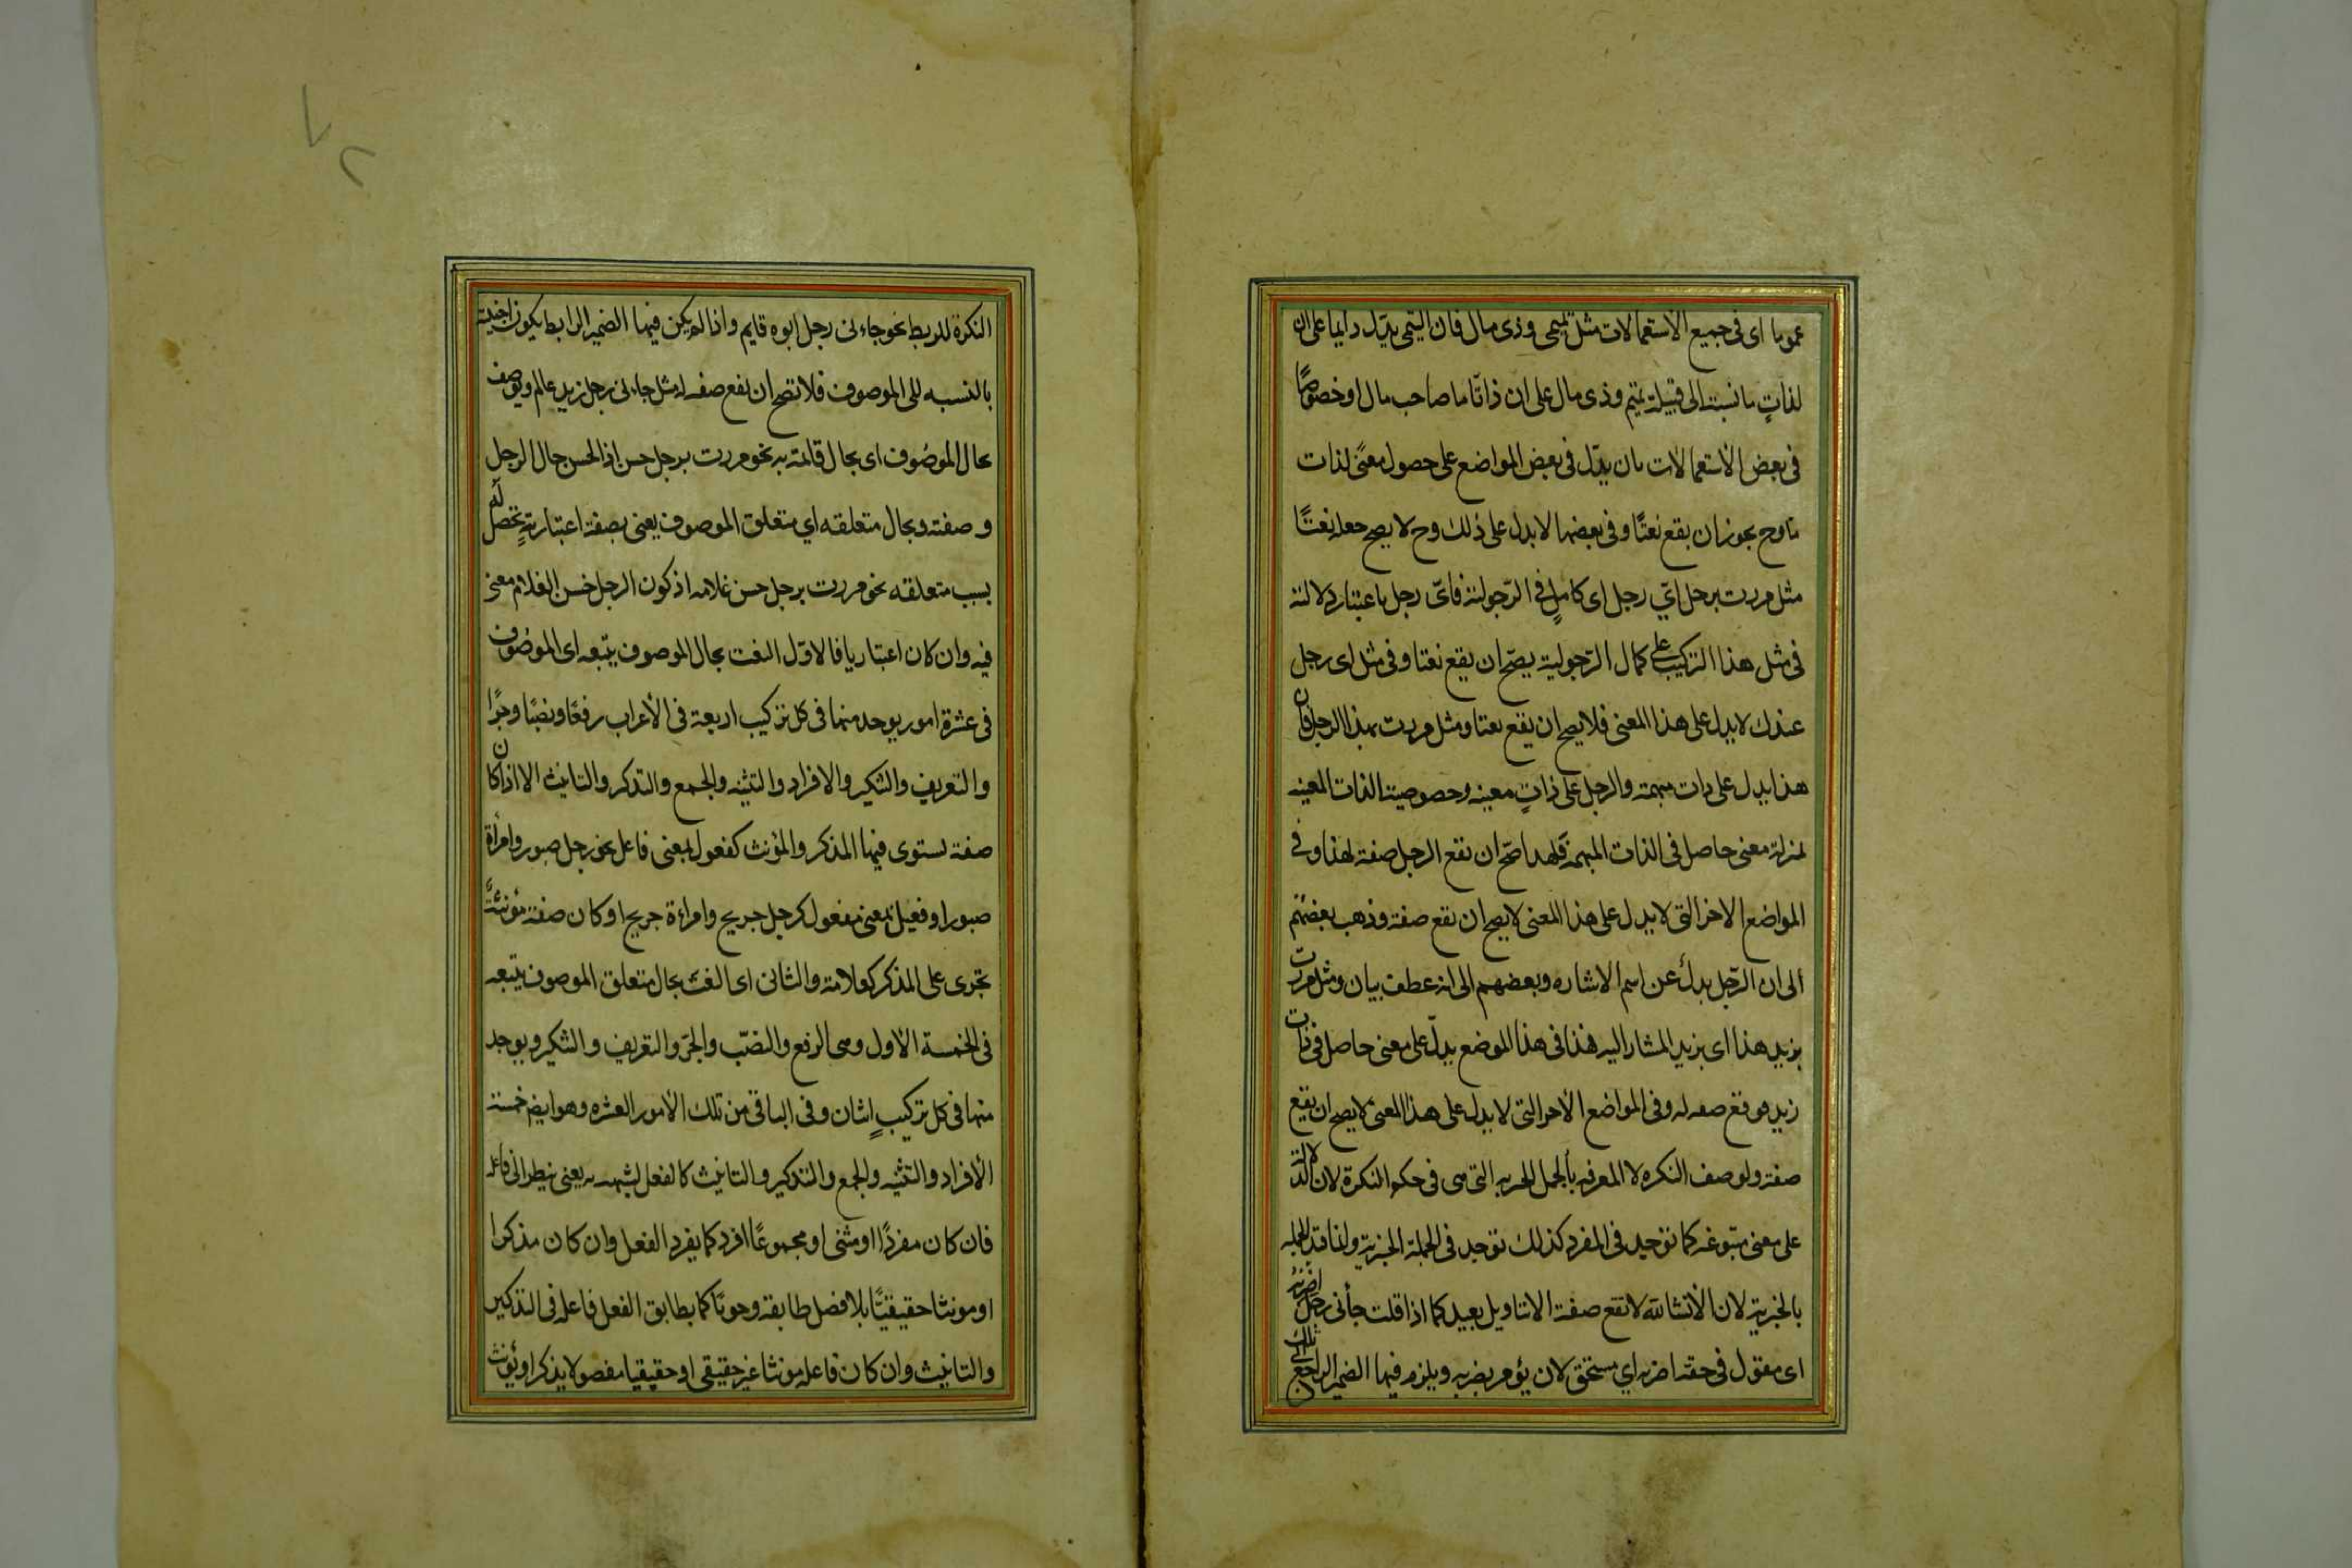 عموما اى فى جميع الاستعمالات مثل تميمى وذى مال فان التميمى يدل دايما على ان
لذاتٍ ما نسبة الى قبيلة تميم وذى مال على ان ذاتا ما صاحب مال او خصوصًا
فى بعض الأستعمالات بان يدّل فى بعض المواضع على حصول معنًى لذات
ما وح يجوز ان يقع نعتًا وفى بعضها لا يدل على ذلك وح لا يصح جعله نعتًا
مثل مررت برجل اىّ رجل اى كاملٍ فى الرّجولية فاىّ رجل باعتبار دلالته
فى مثل هذا التركيب على كمال الرّجولية يصّح ان يقع نعتا وفى مثل اى رجل
عندك لا يدل على هذا المعنى فلا يصح ان يقع نعتا ومثل مررت بهذا الرجل فان
هذا يدل على ذات مبهمة والرجل على ذاتٍ معينه وخصوصية الذات المعينه
بمنزلة معنى حاصل فى الذات المبهمة فلهذا صّح ان تقع الرجل صفة لهذا وفى
المواضع الاخر التى لا يدل على هذا المعنى لا يصح ان تقع صفة وذهب بعضهم
ألى ان الرّجل بدل عن اسم الاشاره وبعضهم الى انه عطف بيان ومثل مررت
بزيد هذا اى بزيد المشار اليه فهذا فى هذا الموضع يدلّ على معنى حاصل فى ذات
زيد فوقع صفه له وفى المواضع الأخر التى لا يدل على هذا المعنى لا يصح ان يقع
صفة ولوصف النكره لا المعرفه بألجمل الخبريه التى هى فى حكم النكرة لان الدلالة
على معنى متبوعه كما توجد فى المفرد كذلك توجد فى الجملة الخبرية ولنا قيد الجمله
بالخبرية لان الأنشائية لا تقع صفة الا بتاويل بعيد كما اذا قلت جأنى رجل اضربه
اى مقول فى حقه اضربه اي مستحق لان يؤمر بضربه ويلزم فيها الضمير الراجع الى تلك
النكرة للربط نحو جاءنى رجل ابوه قايم واذا لم يكن فيها الضمير الرابط يكون اجنبية
بالنسبه الى الموصوف فلا تصح ان تقع صفه له مثل جاءنى رجل زيد عالم ويوصف
بحال الموصُوف اى بحال قائمة به نحو مررت برجل حسن اذ الحسن حال الرجل
وصفته وبحال متعلقه اي متعلق الموصوف يعنى بصفة اعتباريةٍ تحصل له
بسبب متعلقه نحو مررت برجل حسن غلامه اذ كون الرجل حسن الغلام معنى
فيه وان كان اعتباريا فالاوّل النعت بحال الموصوف يتبعه اى الموصُوف
فى عشرة امور يوجد منها فى كل تركيب اربعة فى الأعراب رفعًا ونصبًا وجرًا
والتعريف والتنكير والافراد والتثنيه والجمع والتذكر والتانيث الا اذا كان
صفة يستوى فيها المذكر والمؤنث كفعول بمعنى فاعل نحو رجل صبور وامرأة
صبور او فعيل بمعنى مفعول كرجل جريح وامراءة جريح او كان صفة مؤنثةً
تجرى على المذكر كعلامة والثانى اى النعت بحال متعلق الموصوف يتبعه
فى الخمسة الأول وهى الرفع والنصّب والجرّ والتعريف والتنكير ويوجد
منها فى كل تركيبٍ اثنان وفى الباقى من تلك الأمور العشره وهو ايضا خمسة
الأفراد والتثنيه والجمع والتذكير والتانيث كالفعل لشبهه به يعنى ينظر الى فاعله
فان كان مفردًا او مثنى او مجموعًا افرد كما يفرد الفعل وان كان مذكرا
او مونثا حقيقيًّا بلا فصل طابقه وجوبًا كما يطابق الفعل فاعله فى التذكير
والتانيث وان كان فاعله مونثا غير حقيقى او حقيقيا مفصولا يذكر او يؤنث